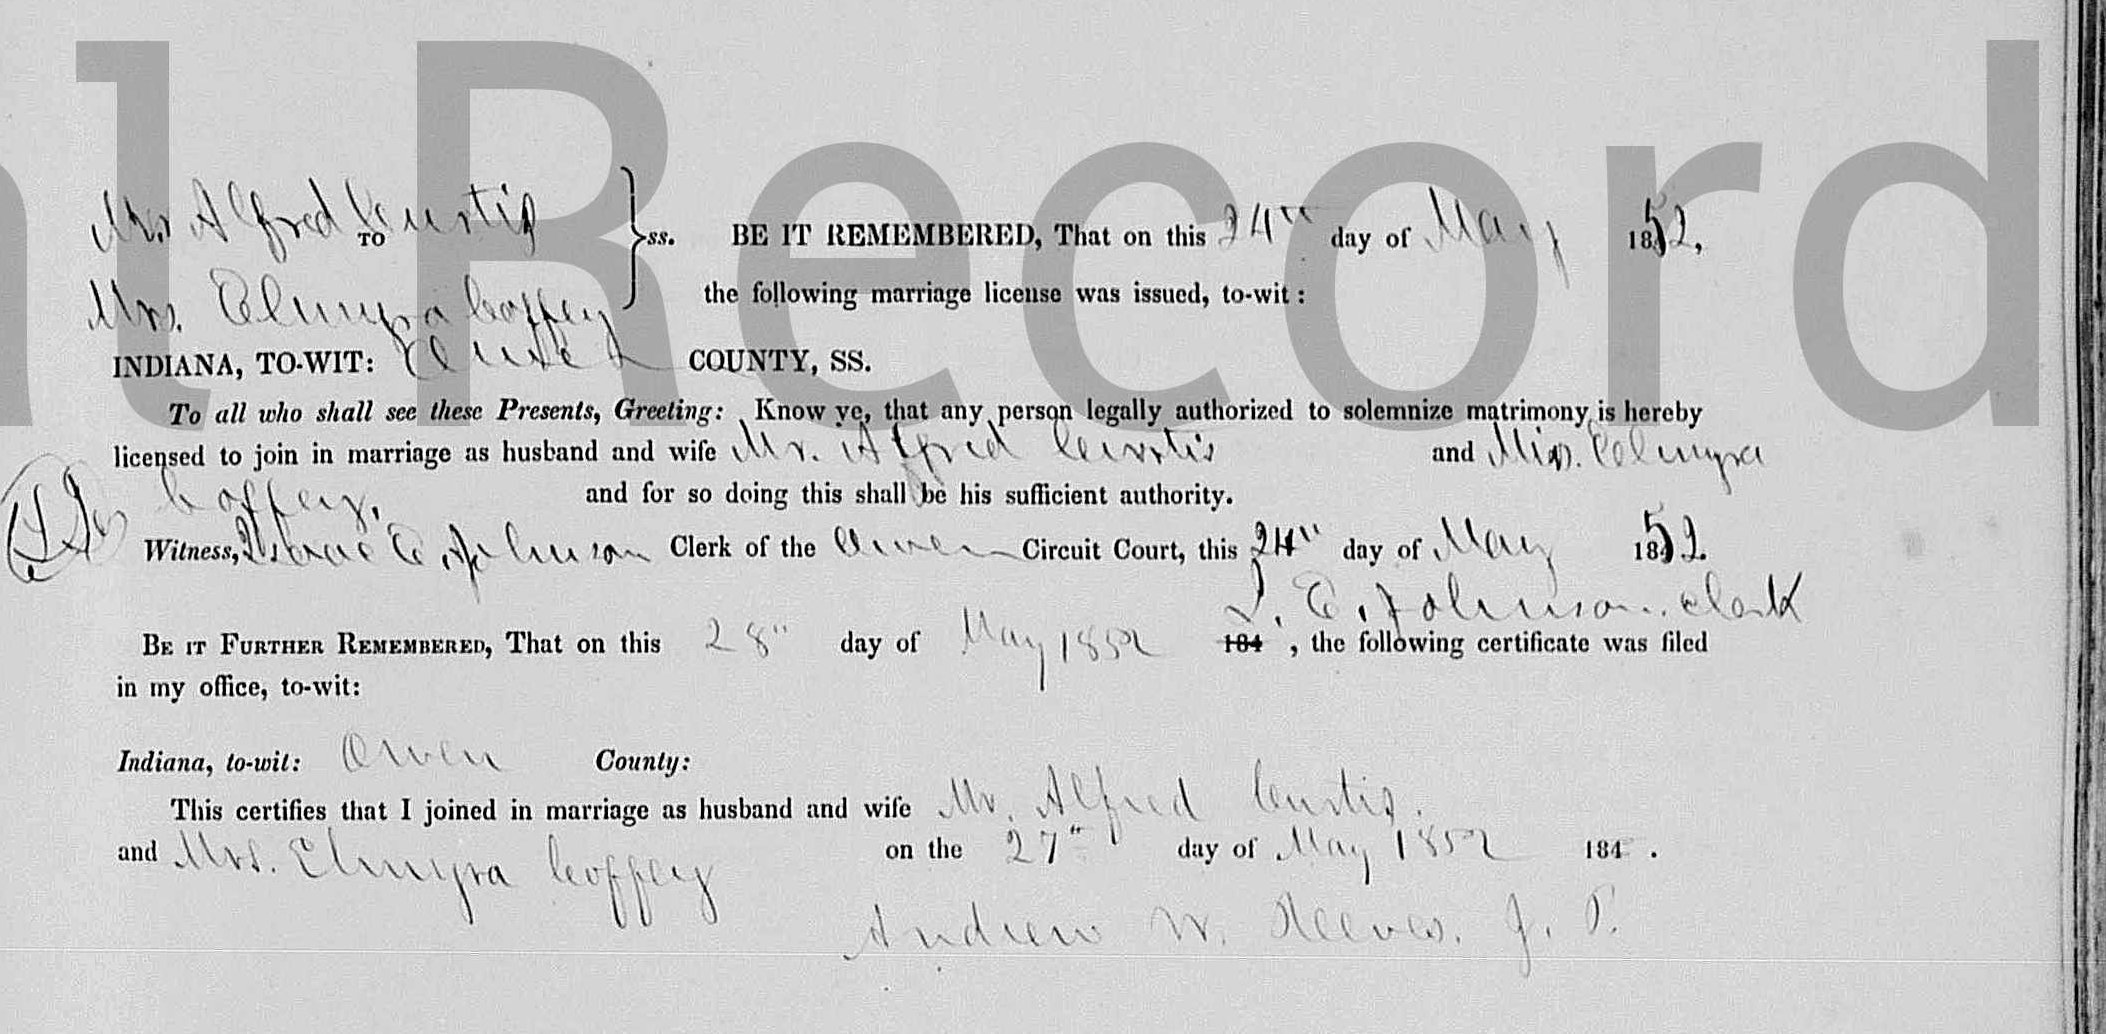 l Record
Mr. Alfred Curtis
TO
ss. BE IT REMEMBERED, That on this 24" day of May 1852,
Mrs. Elmyra Coffey
the following marriage license was issued, to-wit:
INDIANA, TO-WIT: Owen COUNTY, SS.
To all who shall see these Presents, Greeting: Know ye, that any person legally authorized to solemnize matrimony is hereby
licensed to join in marriage as husband and wife Mr. Alfred Curtis and Mrs. Elmyra
Coffey. and for so doing this shall be his sufficient authority.
Witness, E. Johnson Clerk of the Owen Circuit Court, this 24" day of May 1852.
E. Johnson Clerk
BE IT FURTHER REMEMBERED, That on this 28" day of May 1852 184 , the following certificate was filed
in my office, to-wit:
Indiana, to-wit: Owen County:
This certifies that I joined in marriage as husband and wife Mr. Alfred Curtis.
and Mrs. Elmyra Coffey on the 27" day of May 1852 184 .
Andrew W. Reeves. J. P.